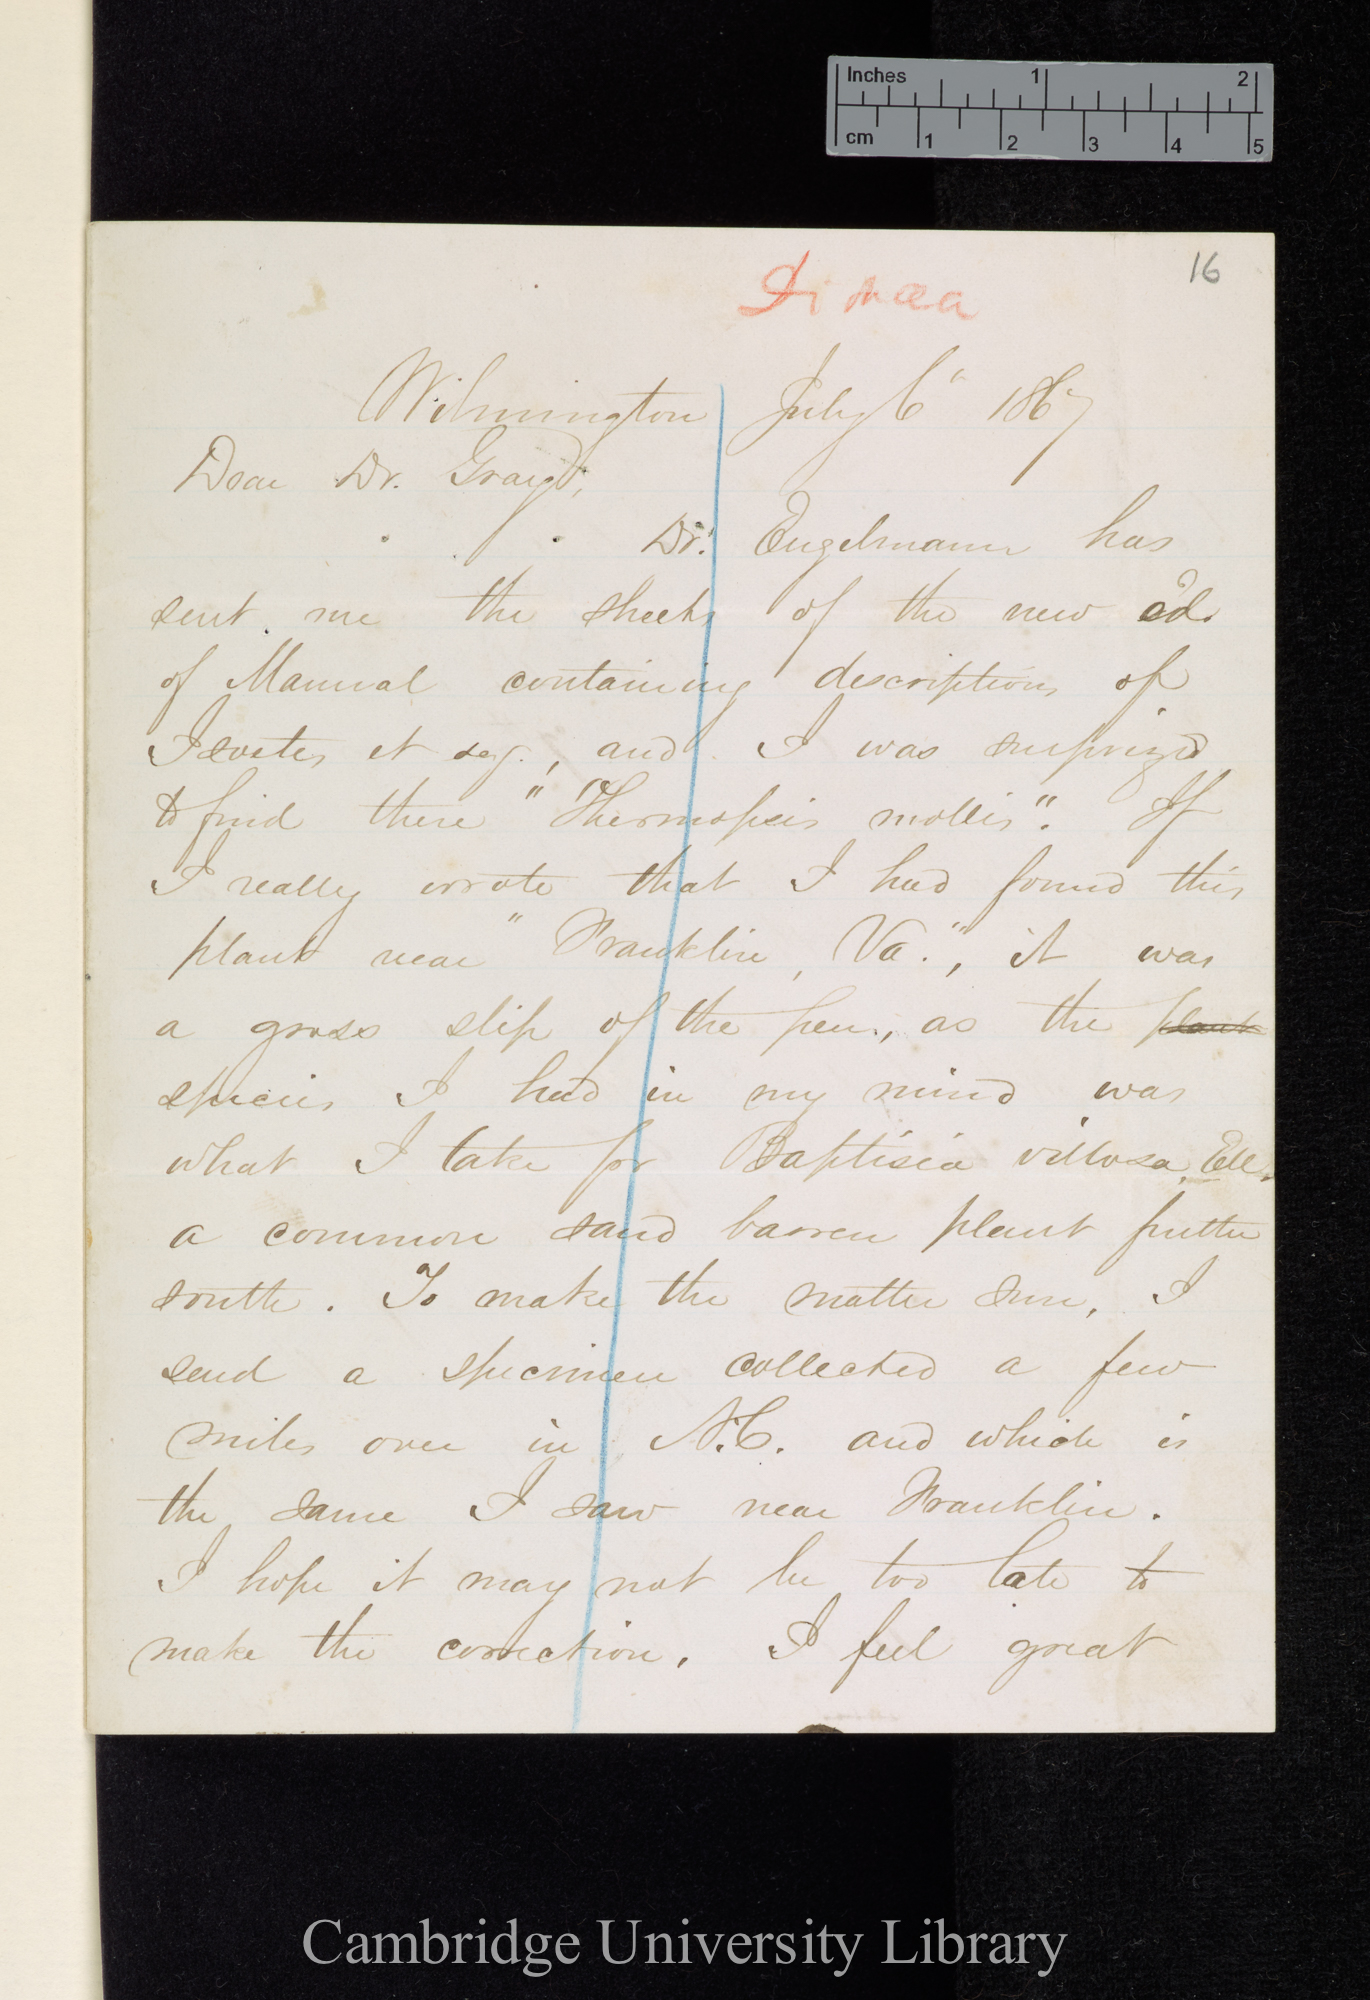 Inches 1 2
cm 1 2 3 4 5
16
Dionaea
Wilmington July 6" 1867
Dear Dr. Gray,
Dr. Engelmann has
sent me the sheets of the new ed.
of Manual containing descriptions of
Isoetes et seq., and I was surprized
to find there "Thermopsis mollis". If
I really wrote that I had found this
plant near "Franklin, Va.", it was
a gross slip of the pen, as the plant
species I had in my mind was
what I take for Baptisia villosa, Ell.
a common sand barren plant further
south. To make the matter sure, I
send a specimen collected a few
miles over in N.C. and which is
the same I saw near Franklin.
I hope it may not be too late to
make the correction. I feel great
Cambridge University Library